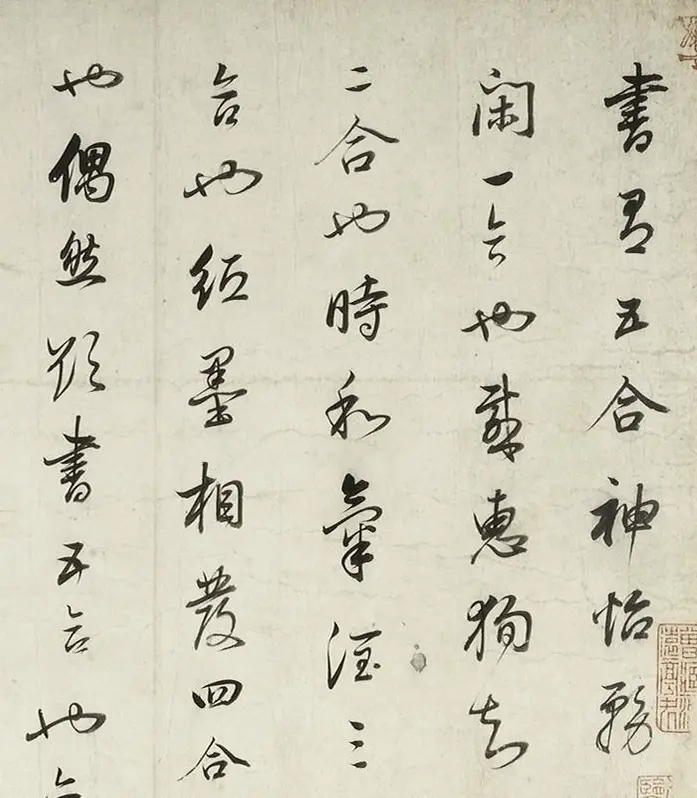 書有五合神怡務
閑一合也感惠徇知
二合也時和氣潤三
合也紙墨相發四合
也偶然欲書五合也合